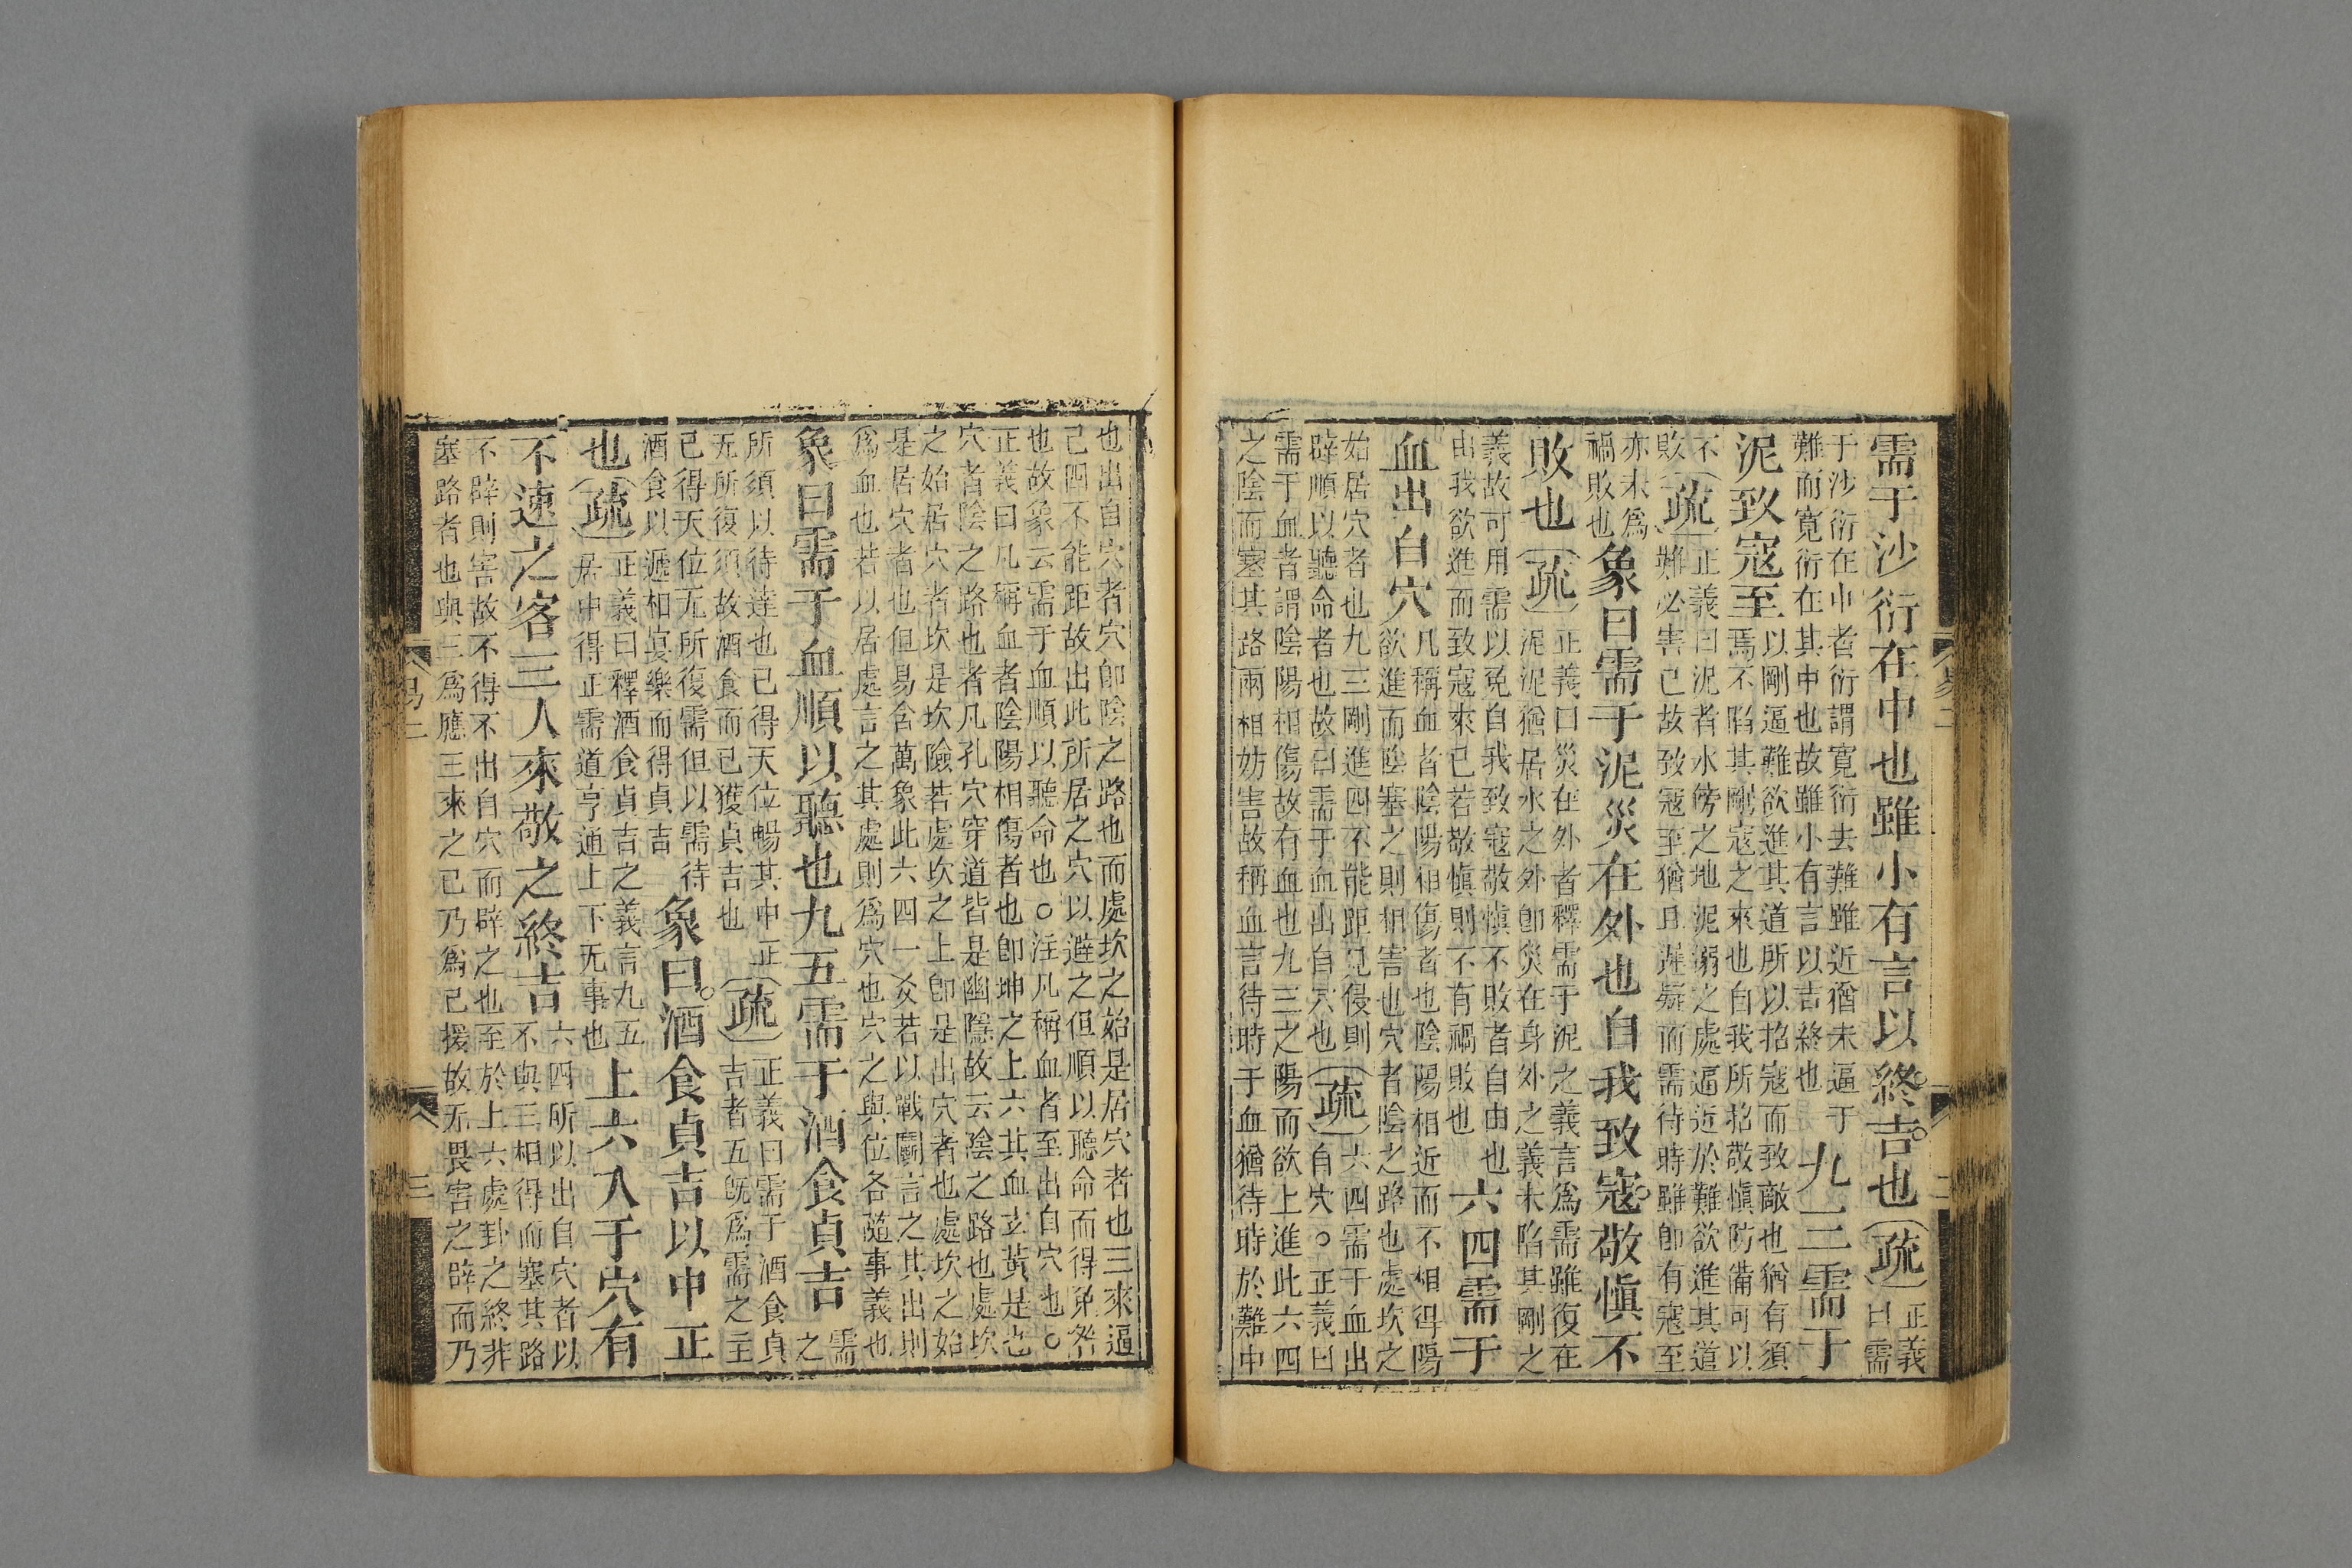 需于沙衍在中也雖小有言以終吉也疏正義
曰需
于沙衍在中者衍謂寛衍去難雖近猶未逼于
難而寛衍在其中也故雖小有言以吉終也
九三需于
泥致寇至以剛逼難欲進其道所以招寇而致敵也猶有須
焉不陷其剛寇之來也自我所招敬慎防備可以
不
敗疏正義曰泥者水傍之地泥溺之處逼近於難欲進其道
難必害己故致寇至猶且遲疑而需待時雖卽有寇至
亦未爲
禍敗也象曰需于泥災在外也自我致寇敬愼不
敗也疏正義曰災在外者釋需于泥之義言爲需雖復在
泥泥猶居水之外卽災在身外之義未陷其剛之
義故可用需以免自我致寇敬愼不敗者自由也
由我欲進而致寇來己若敬愼則不有禍敗也
六四需于
血出自穴凡稱血者陰陽相傷者也陰陽相近而不相得陽
欲進而陰塞之則相害也穴者陰之路也處坎之
始居穴者也九三剛進四不能距見侵則
辟順以聽命者也故曰需于血出自穴也
疏六四需于血出
自穴○正義曰
需于血者謂陰陽相傷故有血也九三之陽而欲上進此六四
之陰而塞其路兩相妨害故稱血言待時于血猶待時於難中
易二
二
也出自穴者穴卽陰之路也而處坎之始是居穴者也三來逼
己四不能距故出此所居之穴以避之但順以聽命而得免咎
也故象云需于血順以聽命也○注凡稱血者至出自穴也○
正義曰凡稱血者陰陽相傷者也卽坤之上六其血玄黃是也
穴者陰之路也者凡孔穴穿道皆是幽隱故云陰之路也處坎
之始居穴者坎是坎險若處坎之上卽是出穴者也處坎之始
是居穴者也但易含萬象此六四一爻若以戰鬭言之其出則
爲血也若以居處言之其處則爲穴也穴之與位各隨事義也
象曰需于血順以聽也九五需于酒食貞吉需
之
所須以待達也已得天位暢其中正
无所復須故酒食而已獲貞吉也
疏正義曰需于酒食貞
吉者五旣爲需之主
已得天位无所復需但以需待
酒食以遞相宴樂而得貞吉
象曰酒食貞吉以中正
也疏正義曰釋酒食貞吉之義言九五
居中得正需道亨通上下无事也
上六入于穴有
不速之客三人來敬之終吉六四所以出自穴者以
不與三相得而塞其路
不辟則害故不得不出自穴而辟之也至於上六處卦之終非
塞路者也與三爲應三來之已乃爲己援故无畏害之辟而乃
易二
三